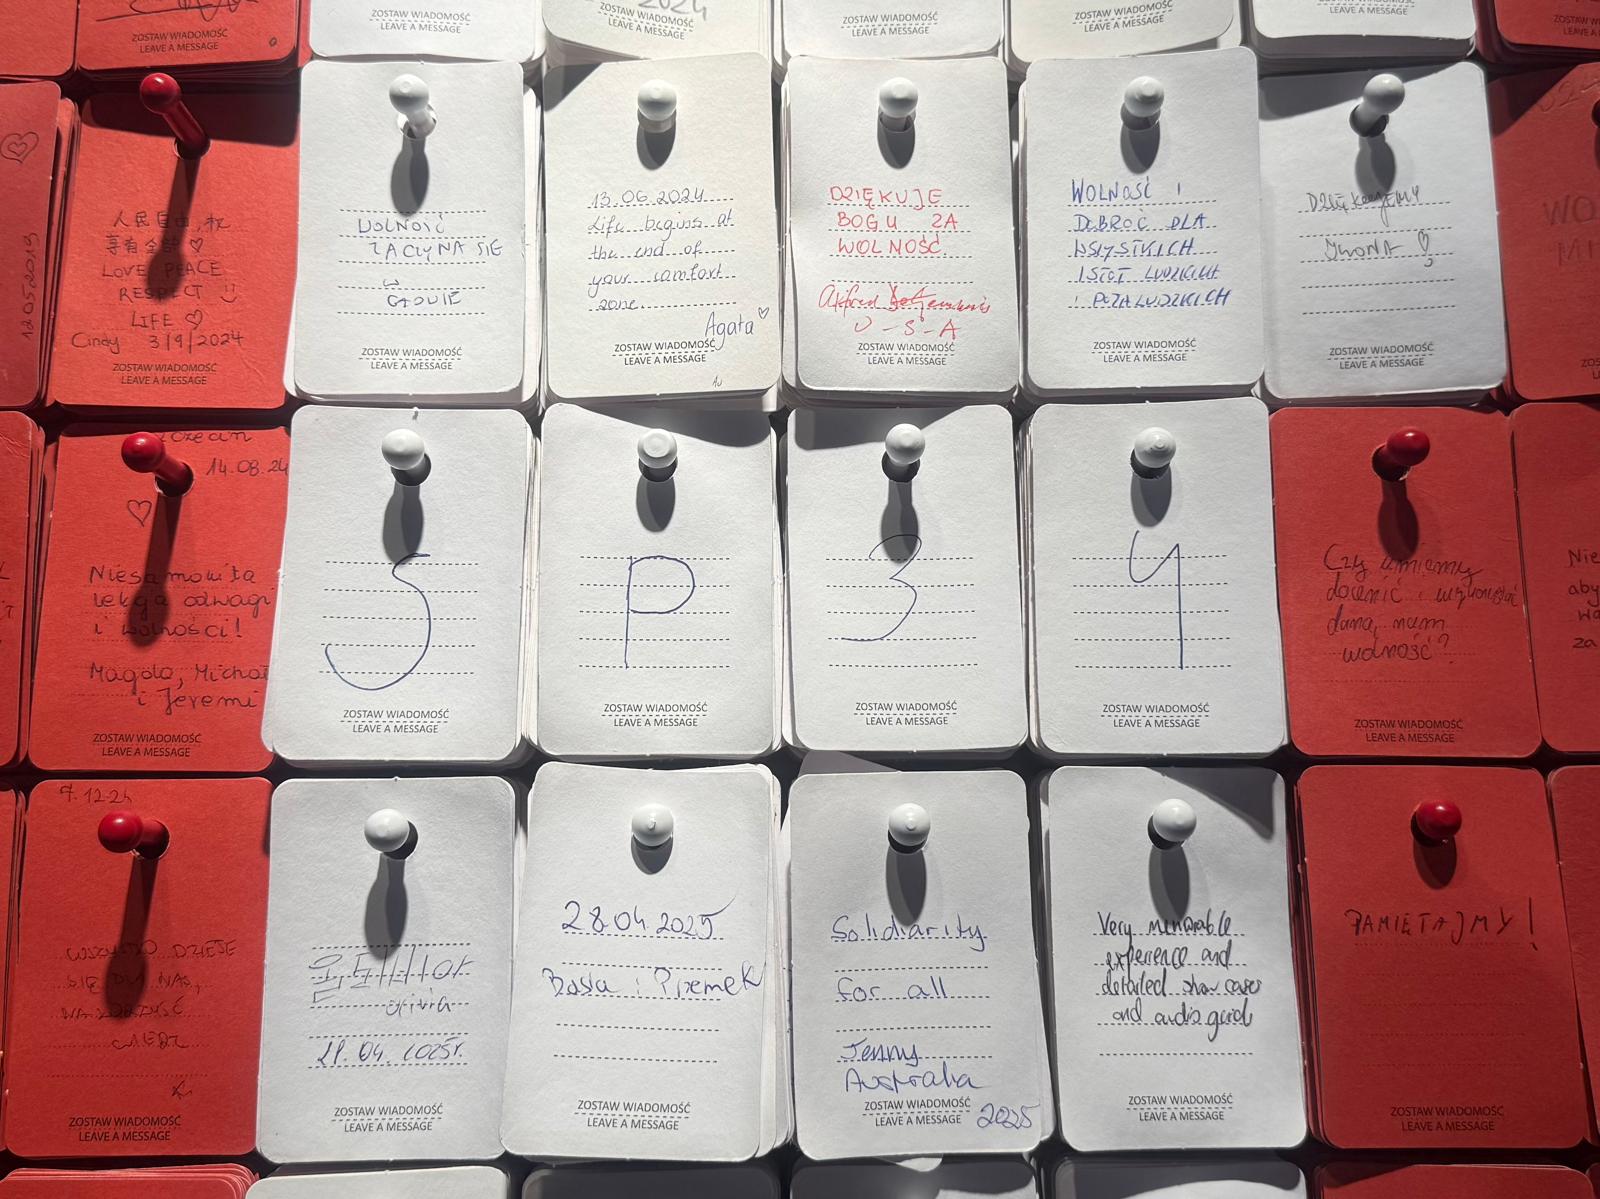 ZOSTAW WIADOMOŚĆ
LEAVE A MESSAGE
ZOSTAW WIADOMOŚĆ
LEAVE A MESSAGE
2024
ZOSTAW WIADOMOŚĆ
LEAVE A MESSAGE
ZOSTAW WIADOMOŚĆ
LEAVE A MESSAGE
ZOSTAW WIADOMOŚĆ
LEAVE A MESSAGE
ZOSTAW WIADOMOŚĆ
LEAVE A MESSAGE
12052019
人民自由,
享有全部 ♡
LOVE PEACE
RESPECT
LIFE ♡
Cindy 3/9/2024
ZOSTAW WIADOMOŚĆ
LEAVE A MESSAGE
WOLNOŚĆ
ZACZYNA SIĘ
W
GŁOWIE
ZOSTAW WIADOMOŚĆ
LEAVE A MESSAGE
13.06.2024
Life begins at
the end of
your comfort
zone
Agata ♡
ZOSTAW WIADOMOŚĆ
LEAVE A MESSAGE
DZIĘKUJE
BOGU ZA
WOLNOŚĆ.
U-S-A
ZOSTAW WIADOMOŚĆ
LEAVE A MESSAGE
WOLNOŚĆ I
DOBROĆ DLA
WSZYSTKICH
ISTOT LUDZKICH
I POZALUDZKICH
ZOSTAW WIADOMOŚĆ
LEAVE A MESSAGE
Dziękujemy
IWONA ♡
ZOSTAW WIADOMOŚĆ
LEAVE A MESSAGE
14.08.24
♡
Niesamowita
lekcja odwagi
i wolności!
Magda, Michał
i Jeremi
ZOSTAW WIADOMOŚĆ
LEAVE A MESSAGE
S
ZOSTAW WIADOMOŚĆ
LEAVE A MESSAGE
P
ZOSTAW WIADOMOŚĆ
LEAVE A MESSAGE
3
ZOSTAW WIADOMOŚĆ
LEAVE A MESSAGE
4
ZOSTAW WIADOMOŚĆ
LEAVE A MESSAGE
Czy umiemy
docenić i wykorzystać
daną nam
wolność?
ZOSTAW WIADOMOŚĆ
LEAVE A MESSAGE
Nie
aby
za
7.12.24
WSZYSTKO DZIEJE
SIĘ DLA NAS,
ZOSTAW WIADOMOŚĆ
LEAVE A MESSAGE
21.04.2025r.
ZOSTAW WIADOMOŚĆ
LEAVE A MESSAGE
28.04.2025
Basia i Przemek
ZOSTAW WIADOMOŚĆ
LEAVE A MESSAGE
Solidiarity
for all
Jenny
Australia
2025
ZOSTAW WIADOMOŚĆ
LEAVE A MESSAGE
Very memorable
experience and
detailed show cases
and audio guide
ZOSTAW WIADOMOŚĆ
LEAVE A MESSAGE
PAMIĘTAJMY!
ZOSTAW WIADOMOŚĆ
LEAVE A MESSAGE